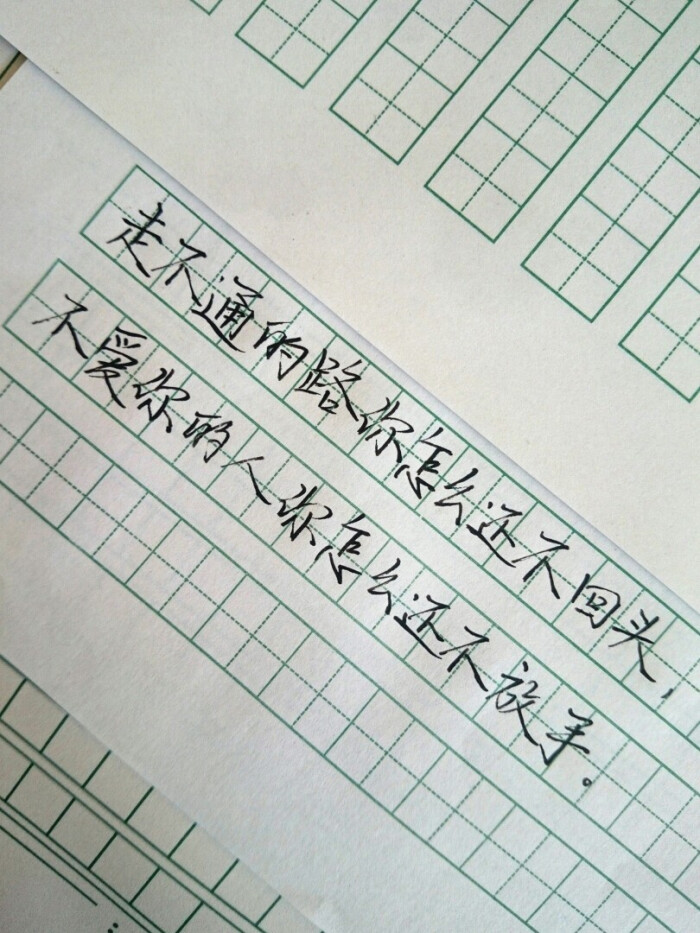 走不通的路你怎么还不回头,
不爱你的人你怎么还不放手。